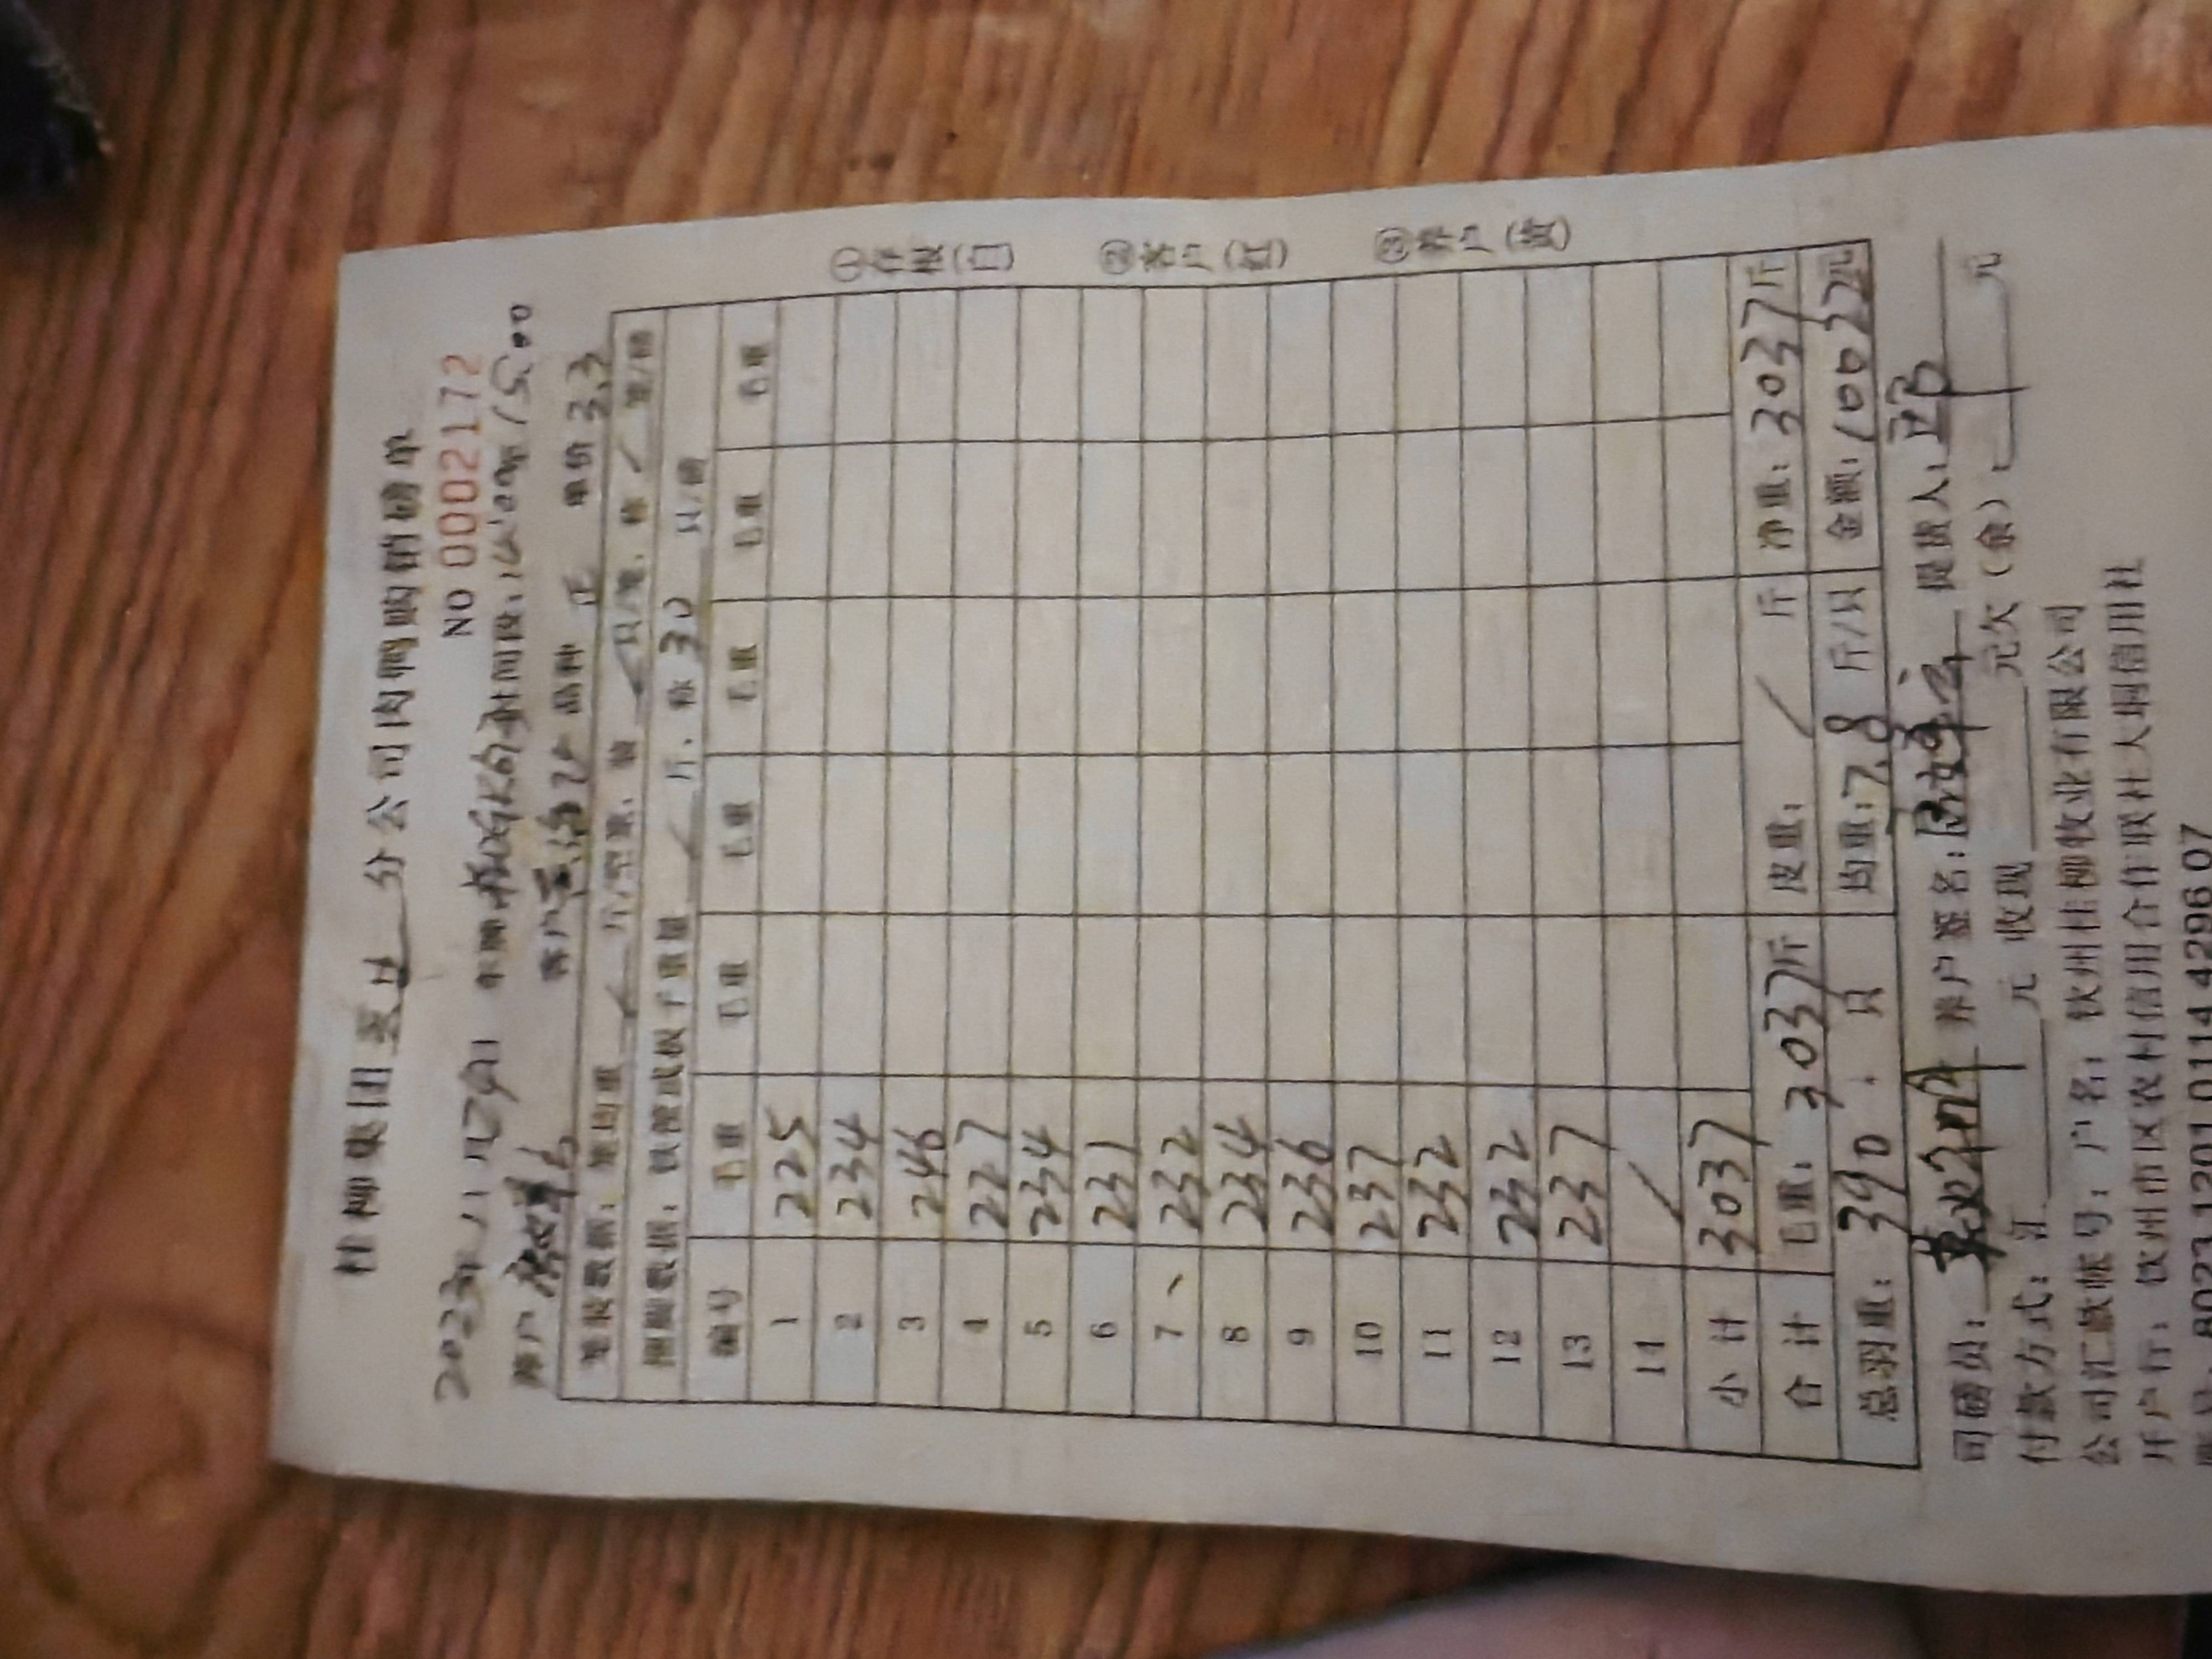 桂柳集团 分公司肉鸭购销磅单
NO 0002172
2023年11月29日 车牌 时间段:
养户 客户 品种 正 单价 3.3
笼装数据:笼均重 / 斤/空笼,装 / 只/笼,称 / 笼/磅
捆脚数据:铁筐或板子重量 / 斤,称 30 只/磅
编号 毛重 毛重 毛重 毛重 毛重 毛重
1 225
2 234
3 246
4 227
5 234
6 231
7 232
8 234
9 236
10 237
11 232
12 232
13 237
14 /
小计 3037
合计 毛重:3037斤 皮重: / 斤 净重:3037斤
总羽重:390 只 均重:7.8 斤/只 金额:10022元
①存根(白) ②客户(红) ③养户(黄)
司磅员: 养户签名: 提货人:
付款方式:汇 元 收现 元欠(余): 元
公司汇款帐号:户名:钦州桂柳牧业有限公司
开户行:钦州市区农村信用合作联社大垌信用社